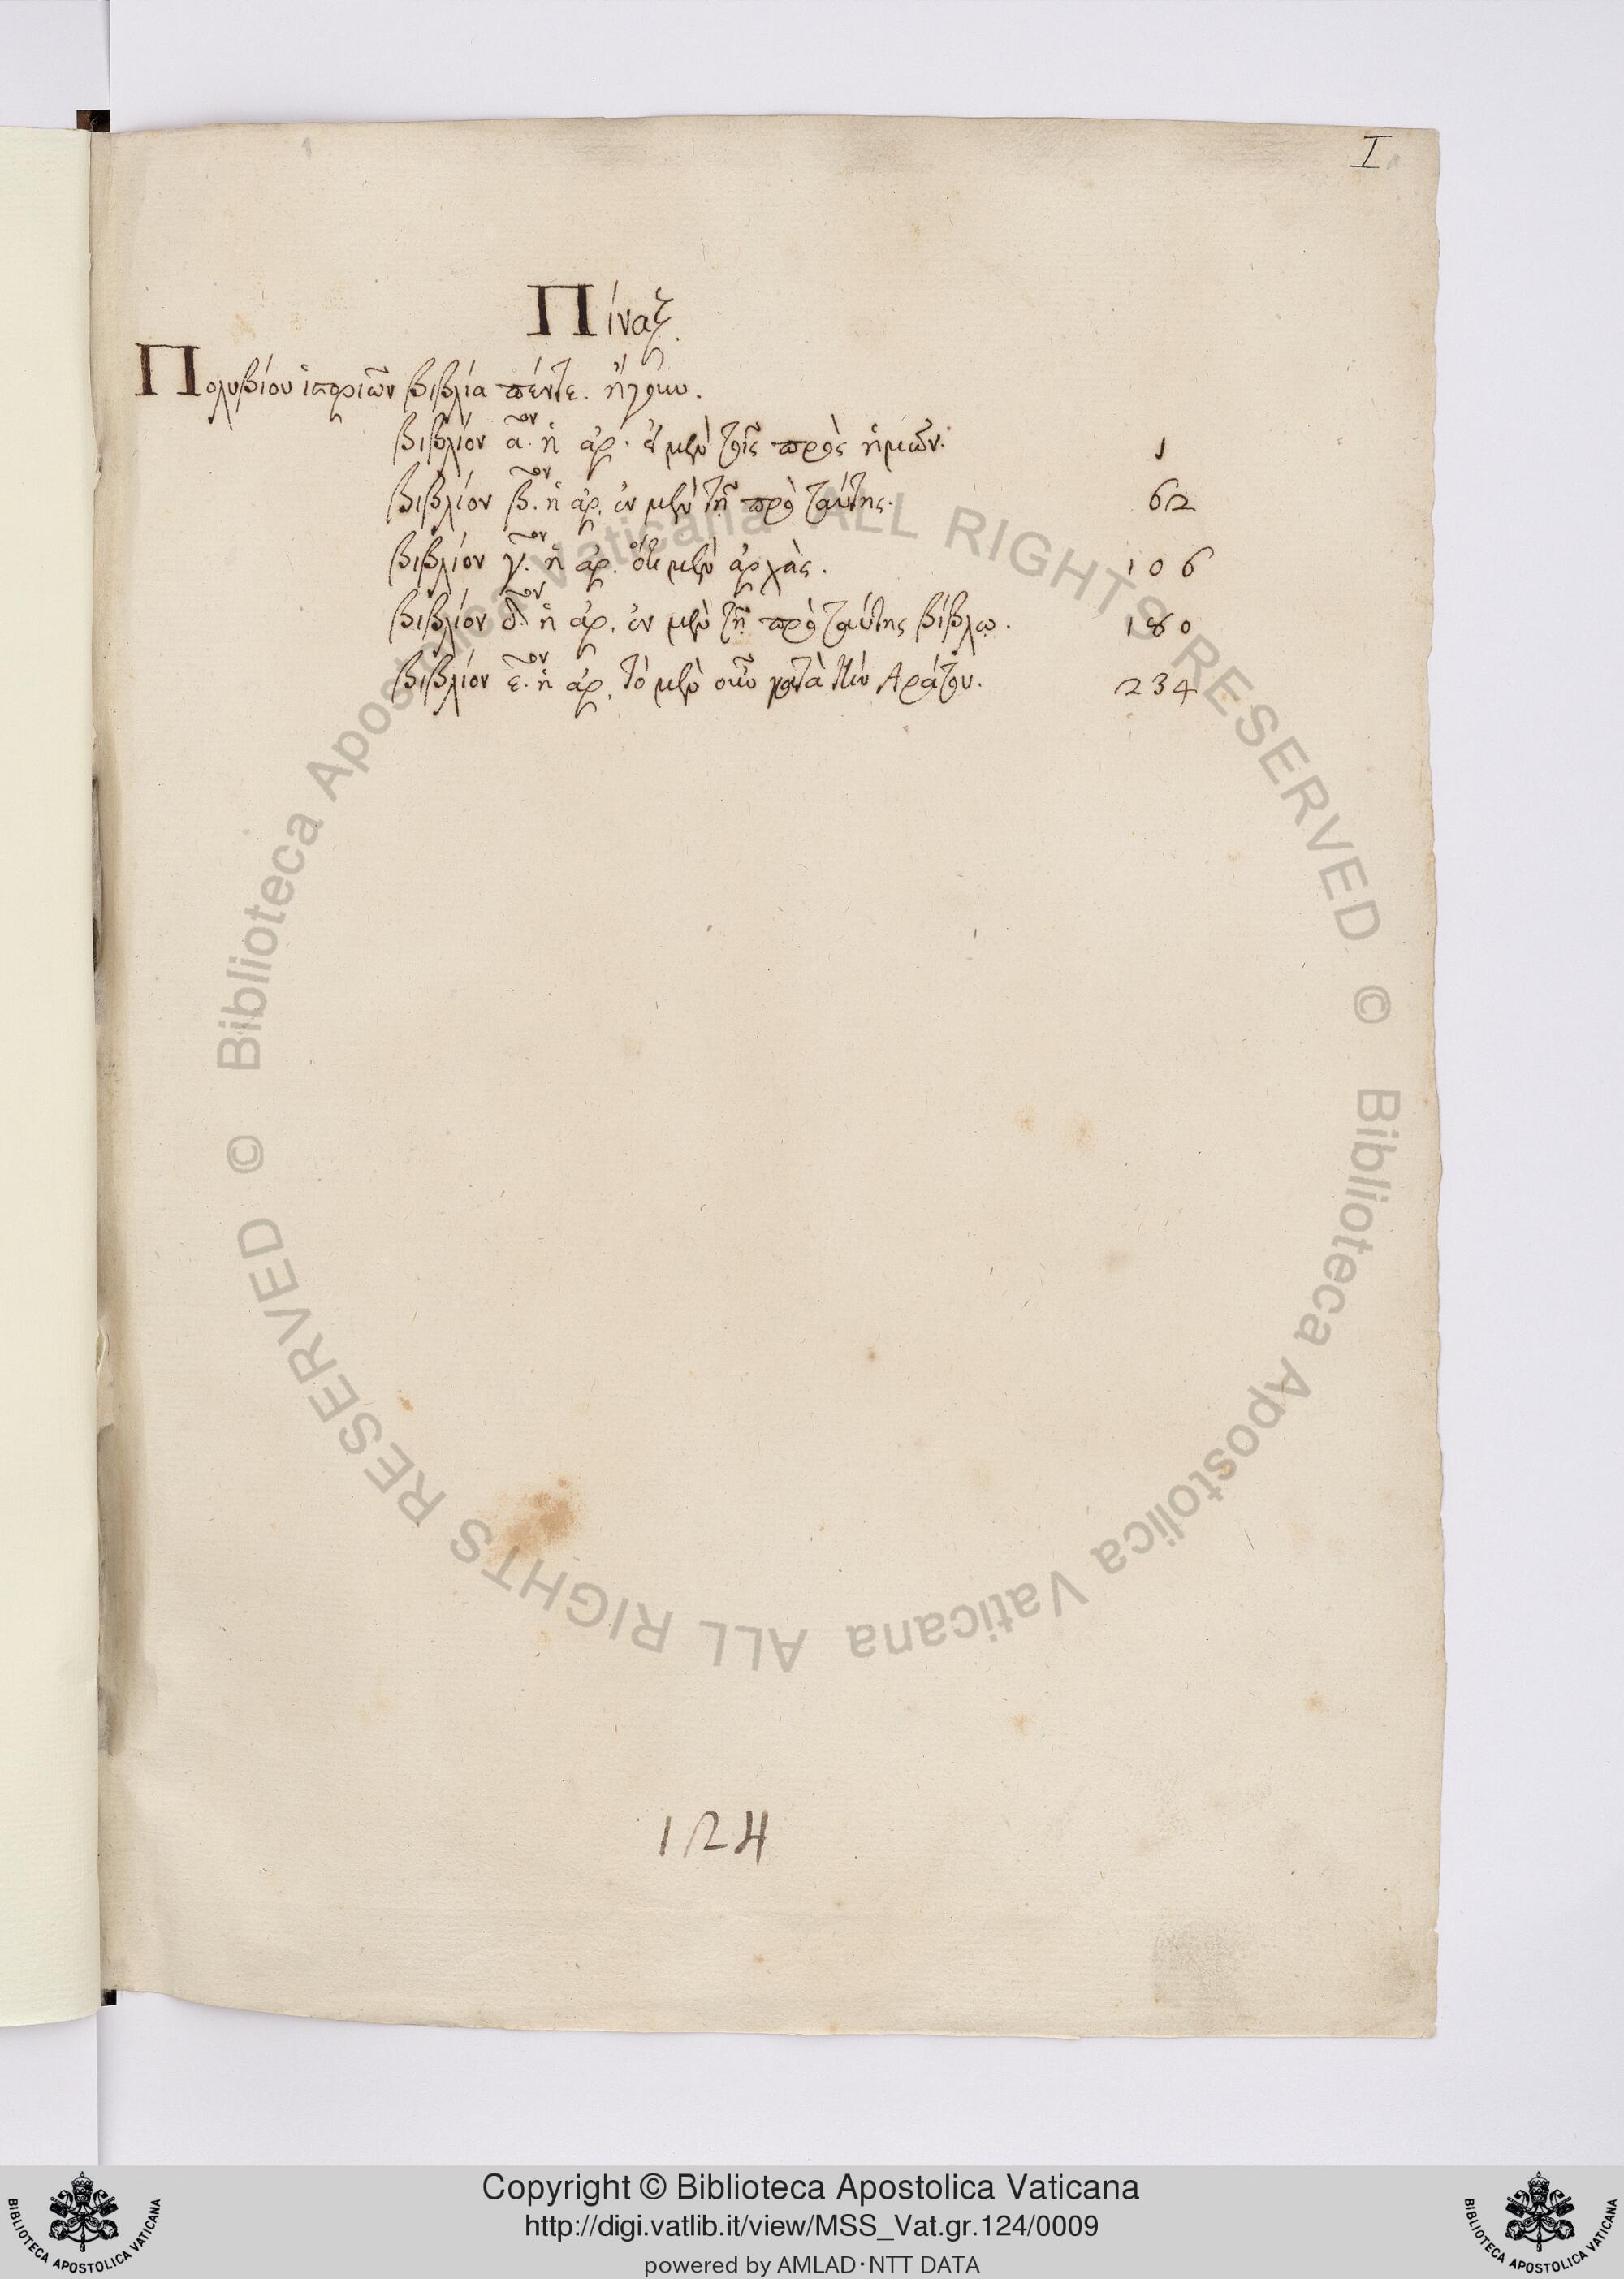 I
Πίναξ.
Πολυβίου ἱστοριῶν βιβλία πέντε. ἤγουν.
βιβλίον α.τον ἡ ἀρ. εἰ μὲν τοῖς πρὸς ἡμῶν. 1
βιβλίον β.τον ἡ ἀρ. ἐν μὲν τῇ πρὸ ταύτης. 62
βιβλίον γ.τον ἡ ἀρ. ὅτι μὲν ἀρχὰς. 106
βιβλίον δ.τον ἡ ἀρ. ἐν μὲν τῇ πρὸ ταύτης βίβλῳ. 180
βιβλίον ε.τον ἡ ἀρ. τὸ μὲν οὖν κατὰ τὴν Ἀράτου. 234
124
© Biblioteca Apostolica Vaticana ALL RIGHTS RESERVED
© Biblioteca Apostolica Vaticana ALL RIGHTS RESERVED
BIBLIOTECA APOSTOLICA VATICANA
Copyright © Biblioteca Apostolica Vaticana
http://digi.vatlib.it/view/MSS_Vat.gr.124/0009
powered by AMLAD·NTT DATA
BIBLIOTECA APOSTOLICA VATICANA